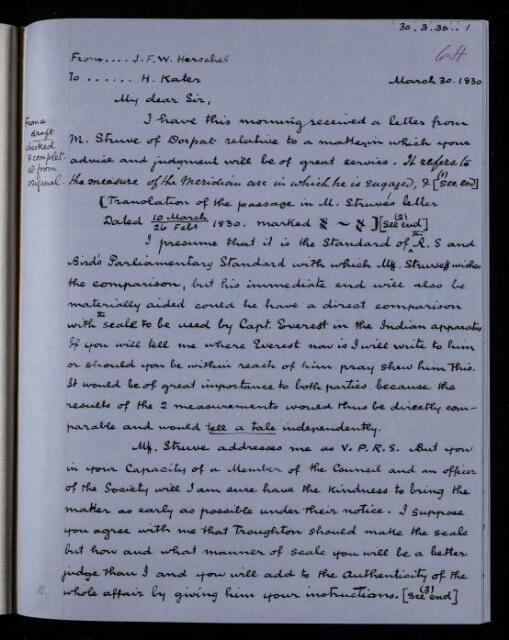 30.3.30..1
From.... J.F.W. Herschel
To ...... H. Kater
March 30. 1830
My dear Sir,
From a
draft
checked
& complet-
ed from
original.
I have this morning received a letter from
M. Struve of Dorpat relative to a matter in which your
advice and judgment will be of great service. It refers to
the measure of the Meridian arc in which he is engaged, & [(1) see end]
{Translation of the passage in M. Struve's letter
Dated 10 March / 26 Feb 1830. marked ℵ ~ ℵ } [(2) see end]
I presume that it is the Standard of the R. S and
Bird's Parliamentary Standard with which M. Struve wishes
the comparison, but his immediate end will also be
materially aided could he have a direct comparison
with the scale to be used by Capt. Everest in the Indian apparatus
If you will tell me where Everest now is I will write to him
or should you be within reach of him pray shew him this.
It would be of great importance to both parties because the
results of the 2 measurements would thus be directly com-
parable and would tell a tale independently.
M. Struve addresses me as V.P.R.S. But you
in your Capacity of a Member of the Council and an officer
of the Society will I am sure have the kindness to bring the
matter as early as possible under their notice. I suppose
you agree with me that Troughton should make the scale
but how and what manner of scale you will be a better
judge than I and you will add to the Authenticity of the
whole affair by giving him your instructions. [(3) see end]